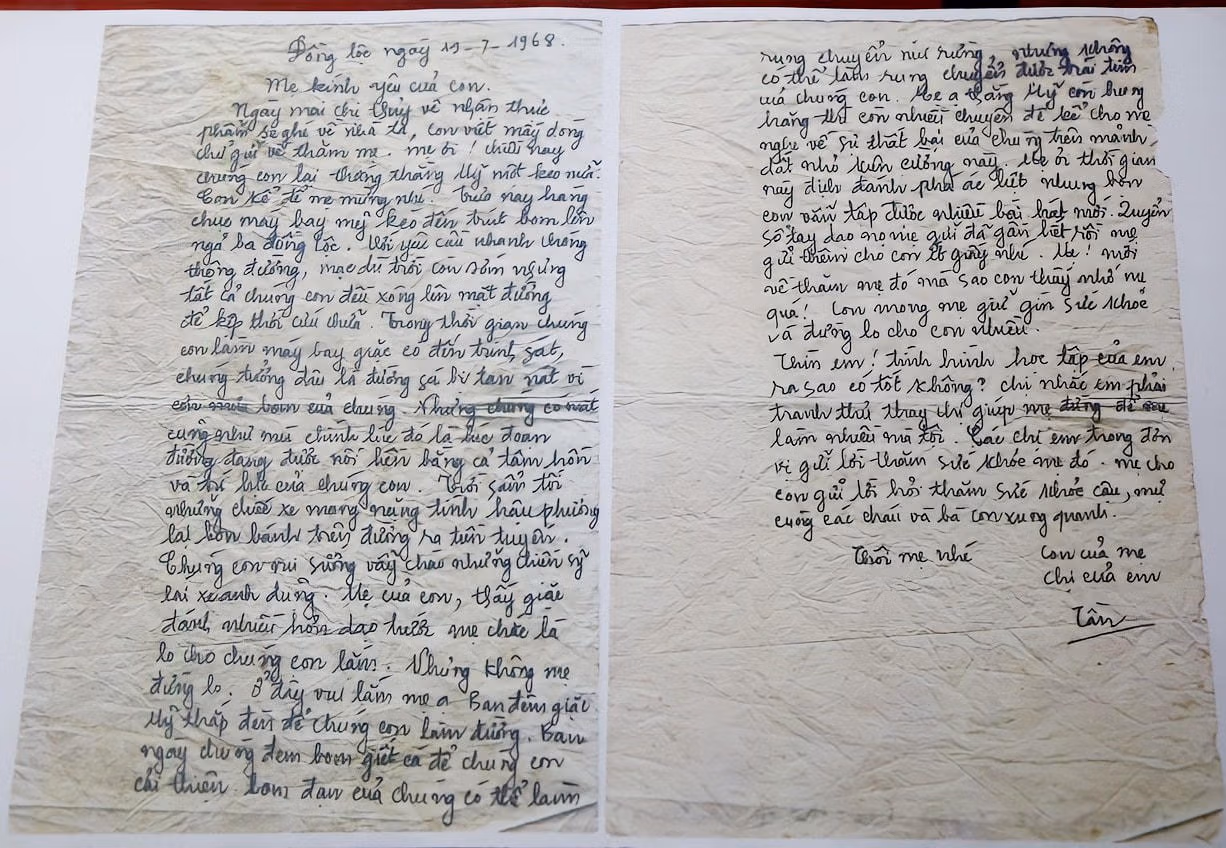 Đồng lộc ngày 19-7-1968.
Mẹ kính yêu của con.
Ngày mai chị Thủy về nhận thực
phẩm sẽ ghé về nhà ta, con viết mấy dòng
chữ gửi về thăm mẹ. mẹ ơi! chiều nay
chúng con lại thắng thằng Mỹ một keo nữa.
Con kể để mẹ mừng nhé. Trưa này hàng
chục máy bay mỹ kéo đến trút bom lên
ngả ba đồng Lộc. Với yêu cầu nhanh chóng
thông đường, mặc dù trời còn sớm nhưng
tất cả chúng con đều xông lên mặt đường
để kịp thời cứu chữa. Trong thời gian chúng
con làm máy bay giặc có đến trinh sát,
chúng tưởng đâu là đường sá bị tan nát vì
bom của chúng. Nhưng chúng có mắt
cũng như mù chính lúc đó là lúc đoạn
đường đang được nối liền bằng cả tâm hồn
và trí lực của chúng con. Trời sẩm tối
những chiếc xe mang nặng tình hậu phương
lại bon bánh trên đường ra tiền tuyến.
Chúng con vui sướng vẫy chào những chiến sỹ
lái xe anh dũng. Mẹ của con, thấy giặc
đánh nhiều hơn dạo trước mẹ chắc là
lo cho chúng con lắm. Nhưng không mẹ
đừng lo. Ở đây vui lắm mẹ ạ Ban đêm giặc
Mỹ thắp đèn để chúng con làm đường. Ban
ngày chúng đem bom giết cá để chúng con
cải thiện. bom đạn của chúng có thể làm
rung chuyển núi rừng, nhưng không
có thể làm rung chuyển được trái tim
của chúng con. Mẹ ạ thằng Mỹ còn hung
hăng thì còn nhiều chuyện để kể cho mẹ
nghe về sự thất bại của chúng trên mảnh
đất nhỏ kiên cường này. Mẹ ơi thời gian
này địch đánh phá ác liệt nhưng bọn
con vẫn tập được nhiều bài hát mới. Quyển
sổ tay dạo nọ mẹ gửi đã gần hết rồi mẹ
gửi thêm cho con ít giấy nhé. Mẹ! mới
về thăm mẹ đó mà sao con thấy nhớ mẹ
quá! Con mong mẹ giữ gìn sức khỏe
và đừng lo cho con nhiều.
Thìn em! tình hình học tập của em
ra sao có tốt không? chị nhắc em phải
tranh thủ thay chị giúp mẹ đừng để mẹ
làm nhiều mà tội. Các chị em trong đơn
vị gửi lời thăm sức khỏe mẹ đó. mẹ cho
con gửi lời hỏi thăm sức khỏe cậu, mự
cùng các cháu và bà con xung quanh.
Thôi mẹ nhé
Con của mẹ
Chị của em
Tần